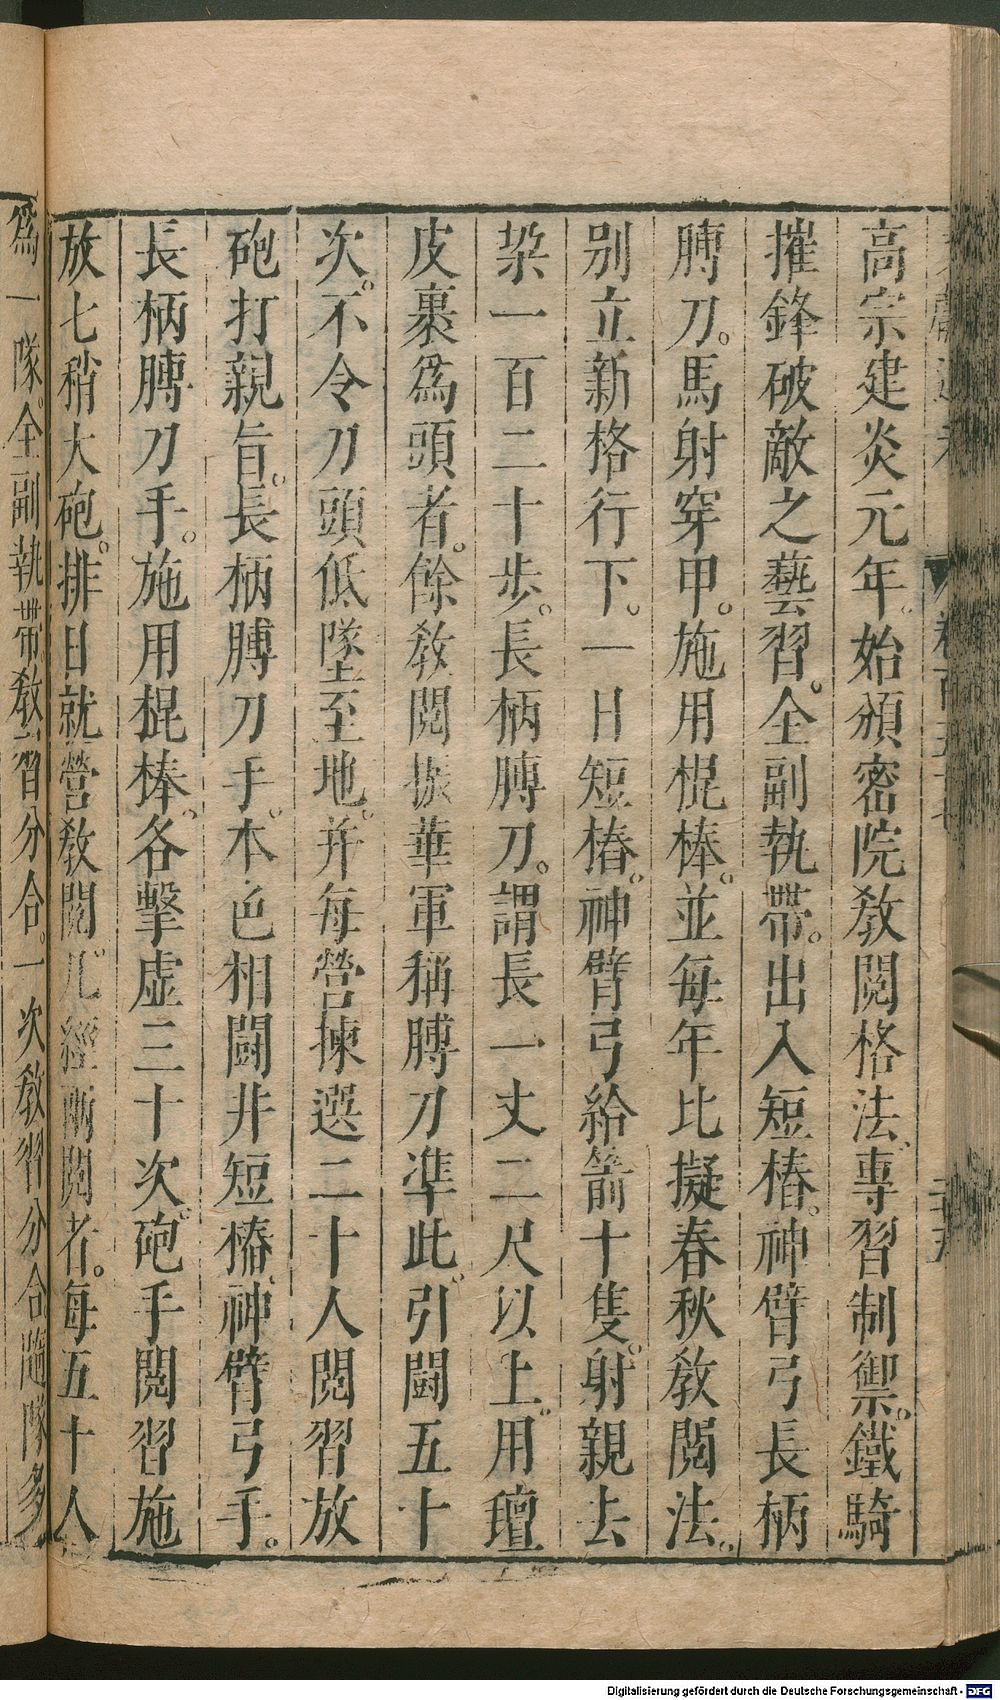 高宗建炎元年。始頒密院教閲格法。專習制禦。鐵騎
摧鋒破敵之藝習。全副執帶。出入短樁。神臂弓長柄
膊刀。馬射穿甲。施用棍棒。並每年比擬春秋教閲法。
别立新格行下。一日短樁。神臂弓給箭十隻。射親去
垜一百二十步。長柄膊刀。謂長一丈二尺以上。用氊
皮裹爲頭者。餘教閲振華軍稱膊刀準此。引鬭五十
次。不令刀頭低墜至地。并每營揀選二十人閲習放
砲打親旨。長柄膊刀手。本色相鬭并短樁神臂弓手。
長柄膊刀手。施用棍棒。各擊虚三十次。砲手閲習施
放七稍大砲。排日就營教閲。凡經兩閲者。每五十人
爲一隊。全副執帶教習分合。一次教習分合隨隊多
Digitalisierung gefördert durch die Deutsche Forschungsgemeinschaft - DFG